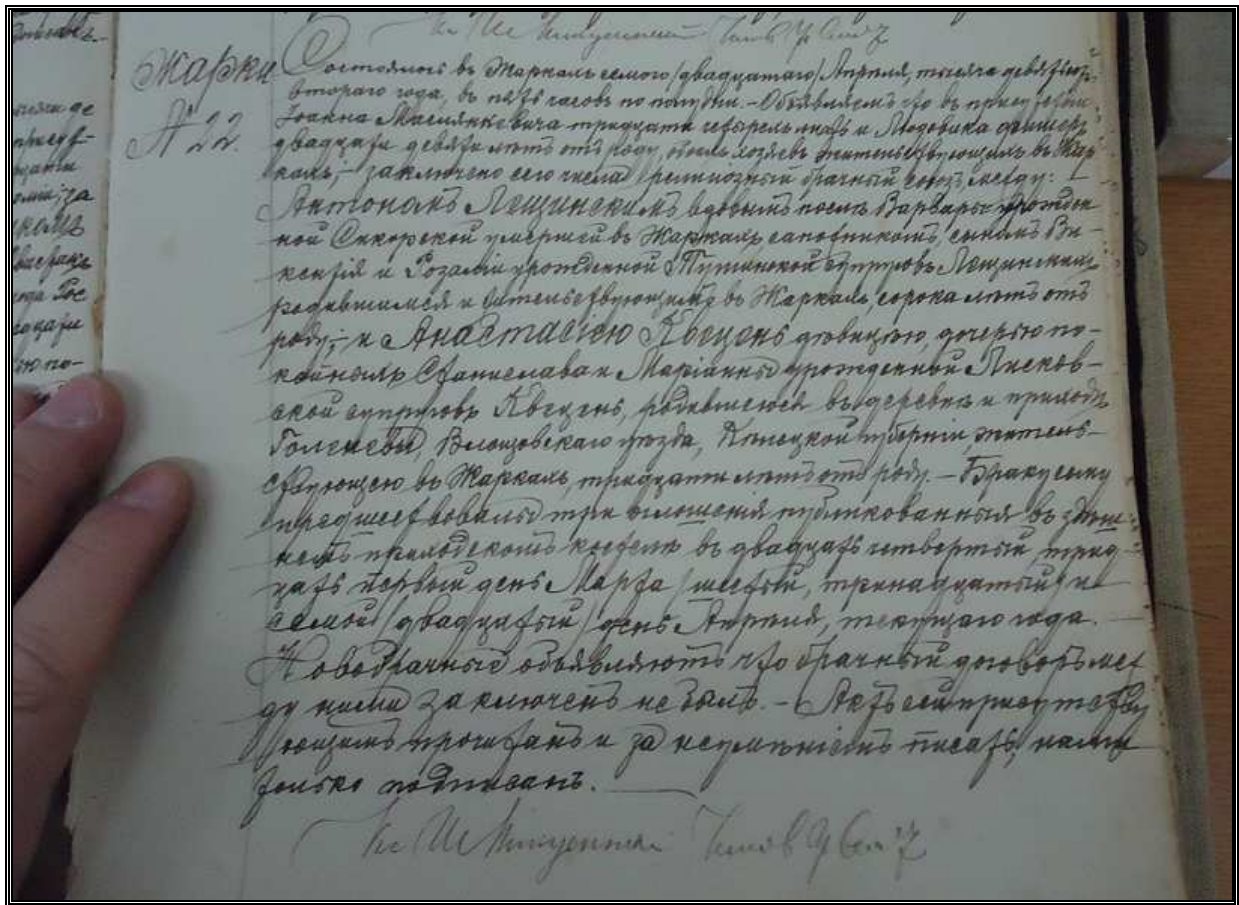 Жарки
№ 22.
Состоялось въ Жаркахъ седьмого /двадцатаго/ Апрѣля, тысяча девятьсотъ
второго года, въ пять часовъ по полудни. - Объявляемъ что въ присутствіи
Іоанна Маслянкевича тридцати четырехъ лѣтъ и Людовика
двадцати девяти лѣтъ отъ роду, обоихъ хозяевъ жительствующихъ въ Жар
кахъ, - заключено сего числа религіозный брачный союзъ между:
Антономъ Лещинскимъ вдовымъ послѣ Варвары урожден
ной Сикорской умершей въ Жаркахъ сапожникомъ, сыномъ Ви-
кентія и Розаліи урожденной супруговъ Лещинскихъ
родившимся и жительствующимъ въ Жаркахъ, сорока лѣтъ отъ
роду; - и Анастасіею Квецень дѣвицею, дочерью по-
койныхъ Станислава и Маріанны урожденной Писков-
ской супруговъ Квецень, родившеюся въ деревнѣ и приходѣ
Влощовскаго уѣзда, Кѣлецкой губерніи житель-
ствующею въ Жаркахъ, тридцати лѣтъ отъ роду. - Браку сему
предшествовали три оглашенія публикованныя въ здѣш-
немъ приходскомъ костелѣ въ двадцать четвертый, трид-
цать первый день Марта /шестый, тринадцатый/ и
седьмой /двадцатый/ день Апрѣля, текущаго года. -
Новобрачные объявляютъ что брачный договоръ меж
ду ними заключенъ не былъ. - Актъ сей присутству
ющимъ прочитанъ и за неумѣніемъ писать, нами
только подписанъ.